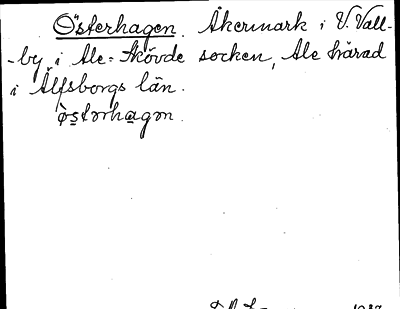 Österhagen. Åkermark i V. Vall-
-by i Ale-Skövde socken, Ale härad
i Älfsborgs län.
òstərhagən.